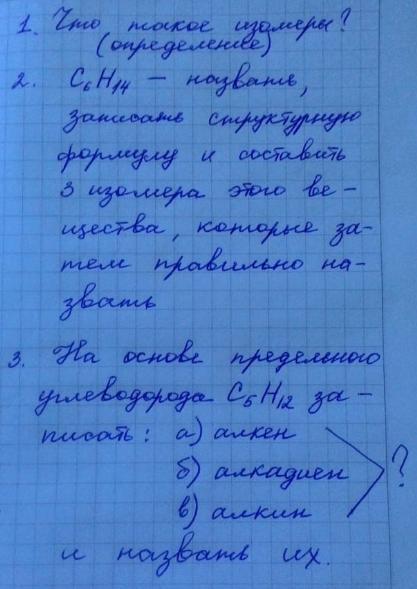 1. Что такое изомеры?
(определение)
2. C₆H₁₄ — назвать,
записать структурную
формулу и составить
3 изомера этого ве-
щества, которые за-
тем правильно на-
звать
3. На основе предельного
углеводорода C₅H₁₂ за-
писать: а) алкен
б) алкадиен ?
в) алкин
и назвать их.